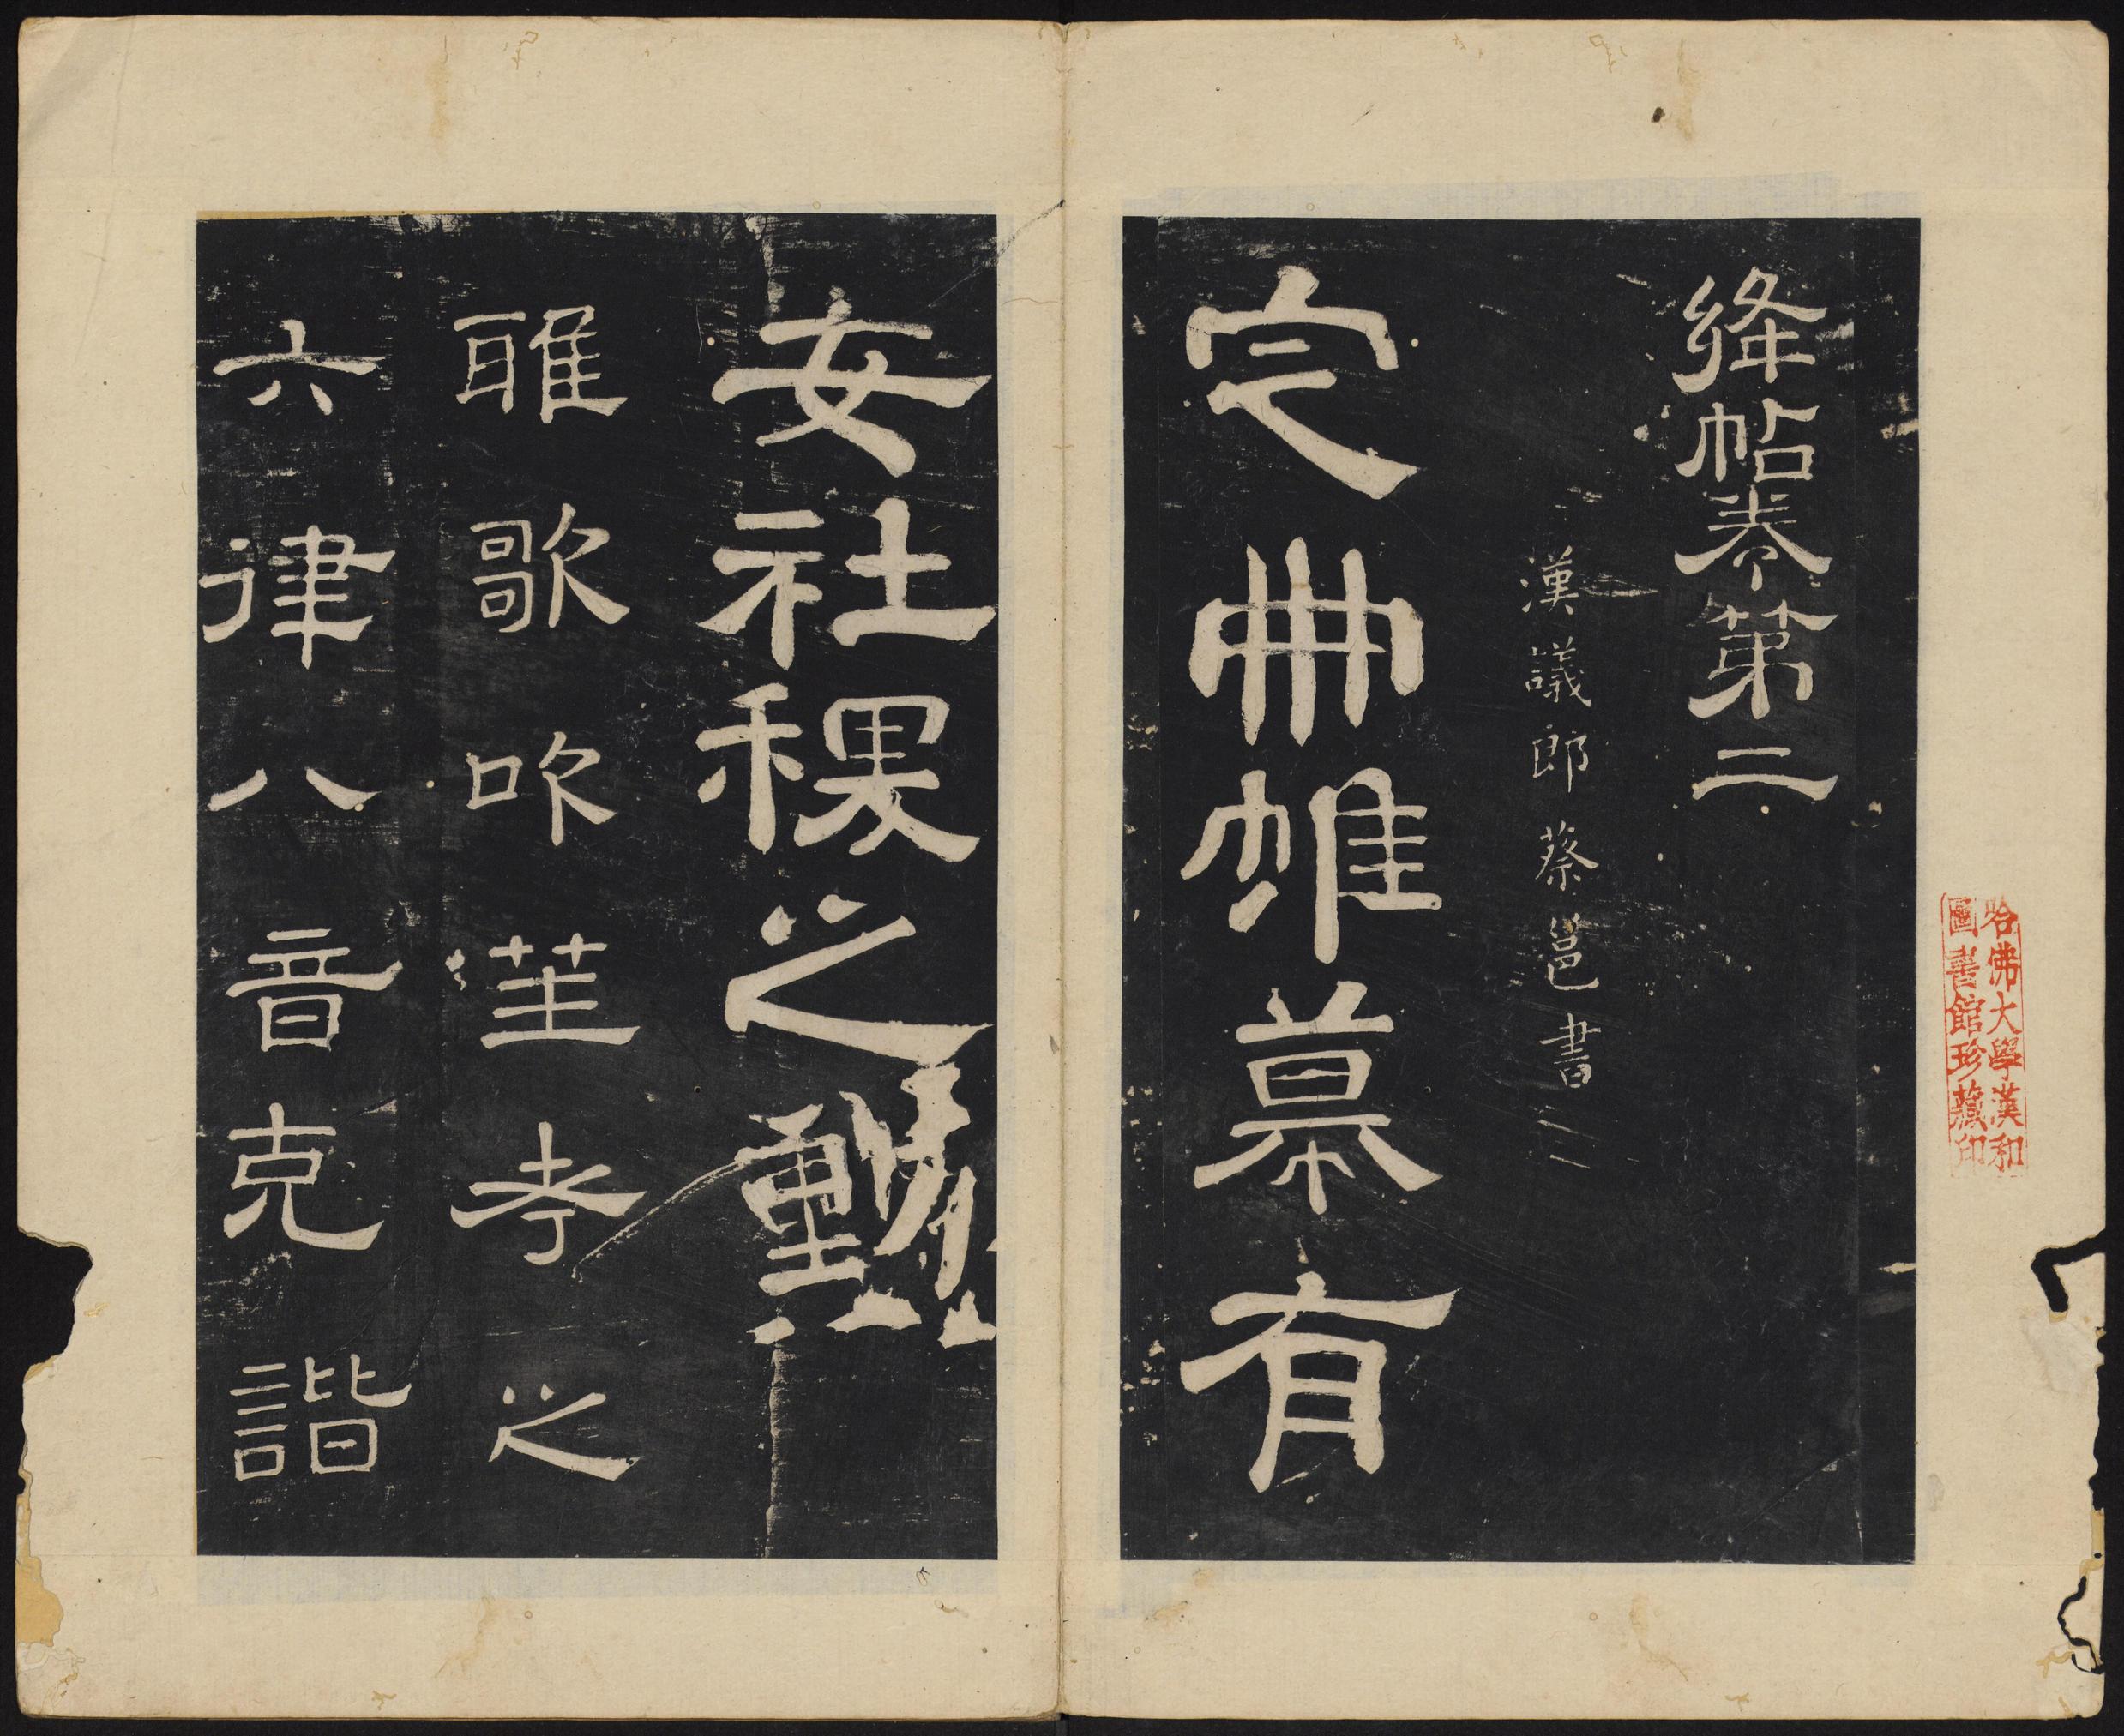 絳帖卷第二
漢議郎蔡邕書
定冊帷幕有
安社稷之勳
雅歌吹笙考之
六律八音克諧
哈佛大學漢和
圖書館珍藏印